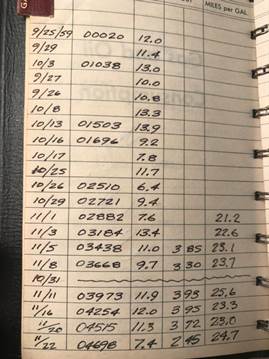 MILES per GAL.
9/25/59 00020 12.0
9/29 11.4
10/3 01038 13.0
9/27 10.0
9/26 10.8
10/8 13.3
10/13 01503 13.9
10/16 01696 9.2
10/17 7.8
10/25 11.7
10/26 02510 6.4
10/29 02721 9.4
11/1 02882 7.6 21.2
11/3 03184 13.4 22.6
11/5 03438 11.0 3 85 23.1
11/8 03668 9.7 3 30 23.7
10/31
11/11 03973 11.9 3 93 25.6
11/16 04254 12.0 3 95 23.3
11/20 04515 11.3 3 72 23.0
11/22 04698 7.4 2 45 24.7